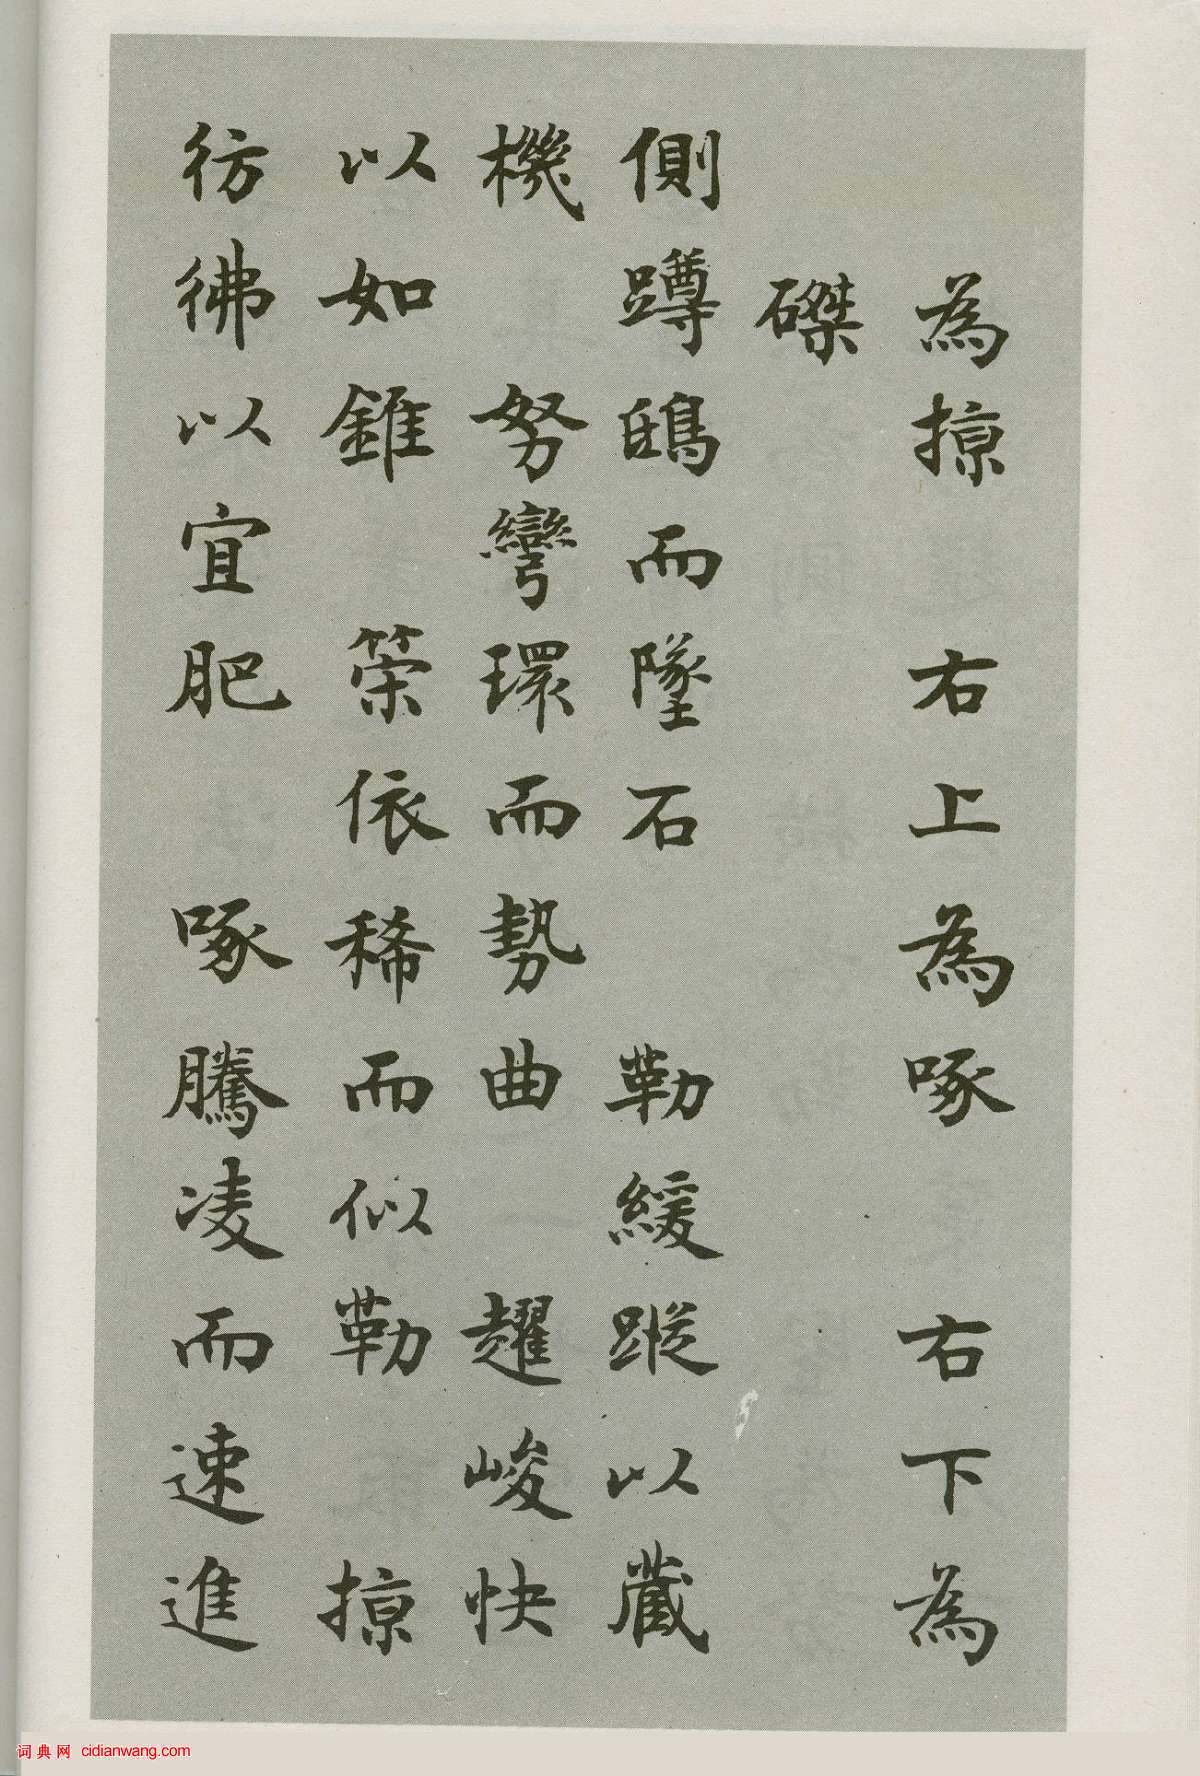 為掠　右上為啄　右下為
磔
側蹲鴟而墜石　勒緩蹤以藏
機　努彎環而勢曲　趯峻快
以如錐　策依稀而似勒　掠
彷彿以宜肥　啄騰凌而速進
词典网 cidianwang.com